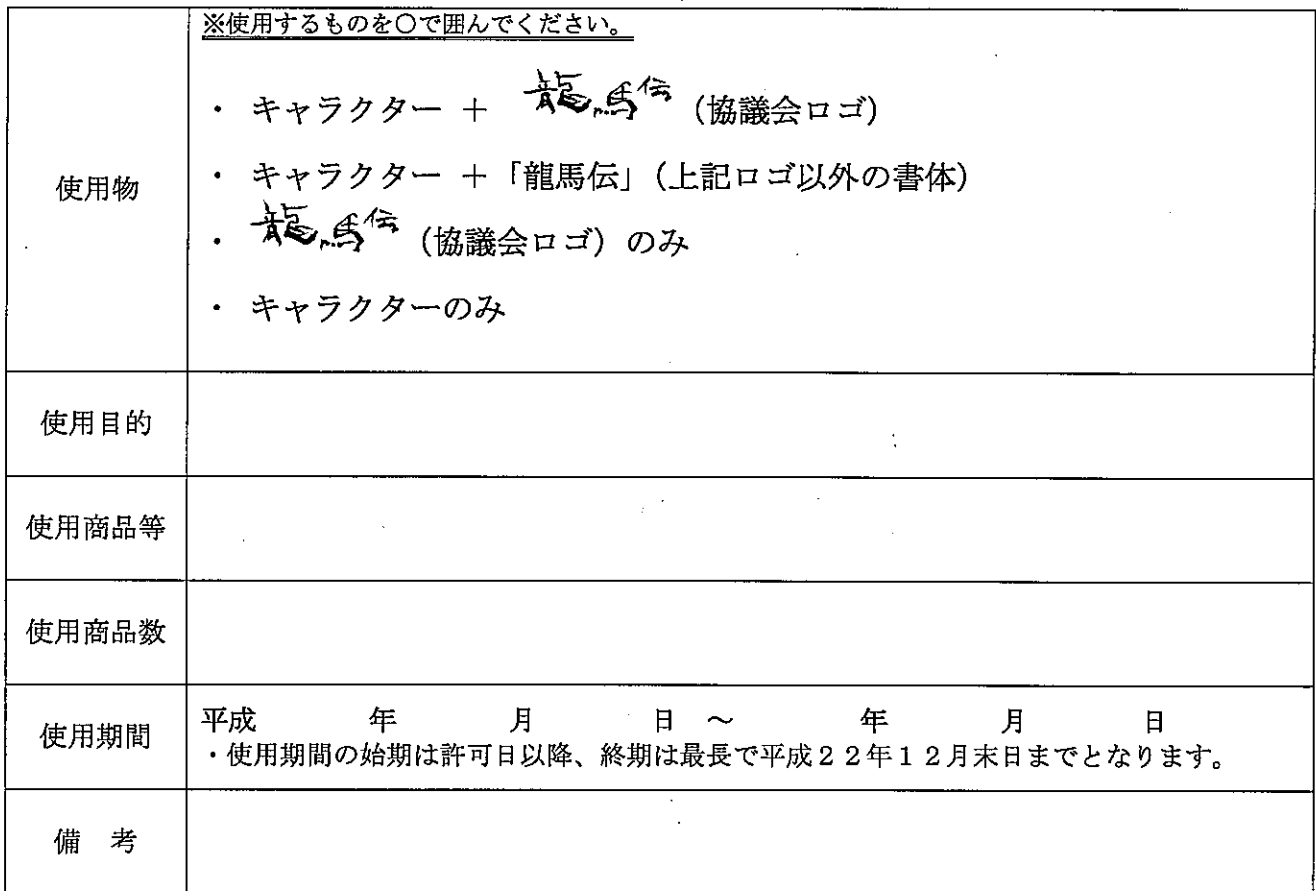 ※使用するものを○で囲んでください。
・ キャラクター ＋ 龍馬伝 (協議会ロゴ)
・ キャラクター ＋「龍馬伝」(上記ロゴ以外の書体)
使用物
・ 龍馬伝 (協議会ロゴ) のみ
・ キャラクターのみ
使用目的
使用商品等
使用商品数
使用期間
平成 年 月 日 ～ 年 月 日
・使用期間の始期は許可日以降、終期は最長で平成２２年１２月末日までとなります。
備 考